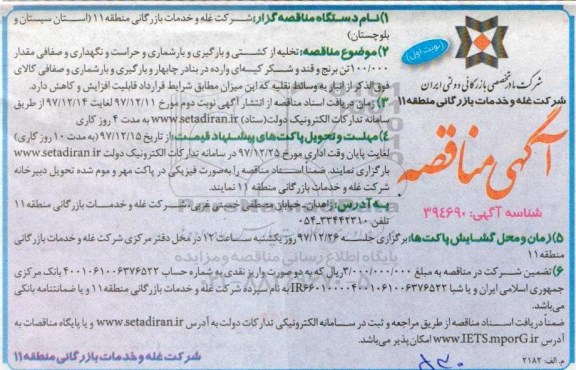 ۱) نام دستگاه مناقصه گزار: شرکت غله و خدمات بازرگانی منطقه ۱۱ (استان سیستان و
بلوچستان)
۲) موضوع مناقصه: تخلیه از کشتی و بارگیری و بارشماری و حراست و نگهداری و صفافی مقدار
۱۰۰/۰۰۰ تن برنج و قند و شکر کیسه‌ای وارده در بنادر چابهار و بارگیری و بارشماری و صفافی کالای
فوق الذکر از انبار به وسائط نقلیه که این میزان مطابق شرایط قرارداد قابلیت افزایش و کاهش دارد.
۳) زمان دریافت اسناد مناقصه از انتشار آگهی نوبت دوم مورخ ۹۷/۱۲/۱۱ لغایت ۹۷/۱۲/۱۴ از طریق
سامانه تدارکات الکترونیک دولت (ستاد) www.setadiran.ir به مدت ۴ روز کاری
۴) مهلت و تحویل پاکت‌های پیشنهاد قیمت: از تاریخ ۹۷/۱۲/۱۵ (به مدت ۱۰ روز کاری)
لغایت پایان وقت اداری مورخ ۹۷/۱۲/۲۵ در سامانه تدارکات الکترونیک دولت www.setadiran.ir
بارگزاری نمایند. ضمناً اسناد مناقصه را به‌صورت فیزیکی در پاکت مهر و موم شده تحویل دبیرخانه
شرکت غله و خدمات بازرگانی منطقه ۱۱ نمایند.
به آدرس: زاهدان، خیابان مصطفی خمینی غربی، شرکت غله و خدمات بازرگانی منطقه ۱۱
تلفن ۳۳۴۴۲۳۱۰-۰۵۴
۵) زمان و محل گشایش پاکت‌ها: برگزاری جلسه ۹۷/۱۲/۲۶ روز یکشنبه ساعت ۱۲ در محل دفتر مرکزی شرکت غله و خدمات بازرگانی
منطقه ۱۱
۶) تضمین شرکت در مناقصه به مبلغ ۳/۰۰۰/۰۰۰/۰۰۰ ریال که به دو صورت واریز نقدی به شماره حساب ۴۰۰۱۰۶۱۰۰۶۳۷۶۵۲۲ بانک مرکزی
جمهوری اسلامی ایران و یا شبا IR۶۶۰۱۰۰۰۰۴۰۰۱۰۶۱۰۰۶۳۷۶۵۲۲ به نام سپرده شرکت غله و خدمات بازرگانی منطقه ۱۱ و یا ضمانتنامه بانکی
می‌باشد.
ضمناً دریافت اسناد مناقصه از طریق مراجعه و ثبت در سامانه الکترونیکی تدارکات دولت به آدرس www.setadiran.ir و یا پایگاه مناقصات به
آدرس www.IETS.mporG.ir امکان پذیر می‌باشد.
م. الف: ۲۱۸۲
شرکت غله و خدمات بازرگانی منطقه ۱۱
(نوبت اول)
شرکت مادر تخصصی بازرگانی دولتی ایران
شرکت غله و خدمات بازرگانی منطقه ۱۱
آگهی مناقصه
شناسه آگهی: ۳۹۴۶۹۰